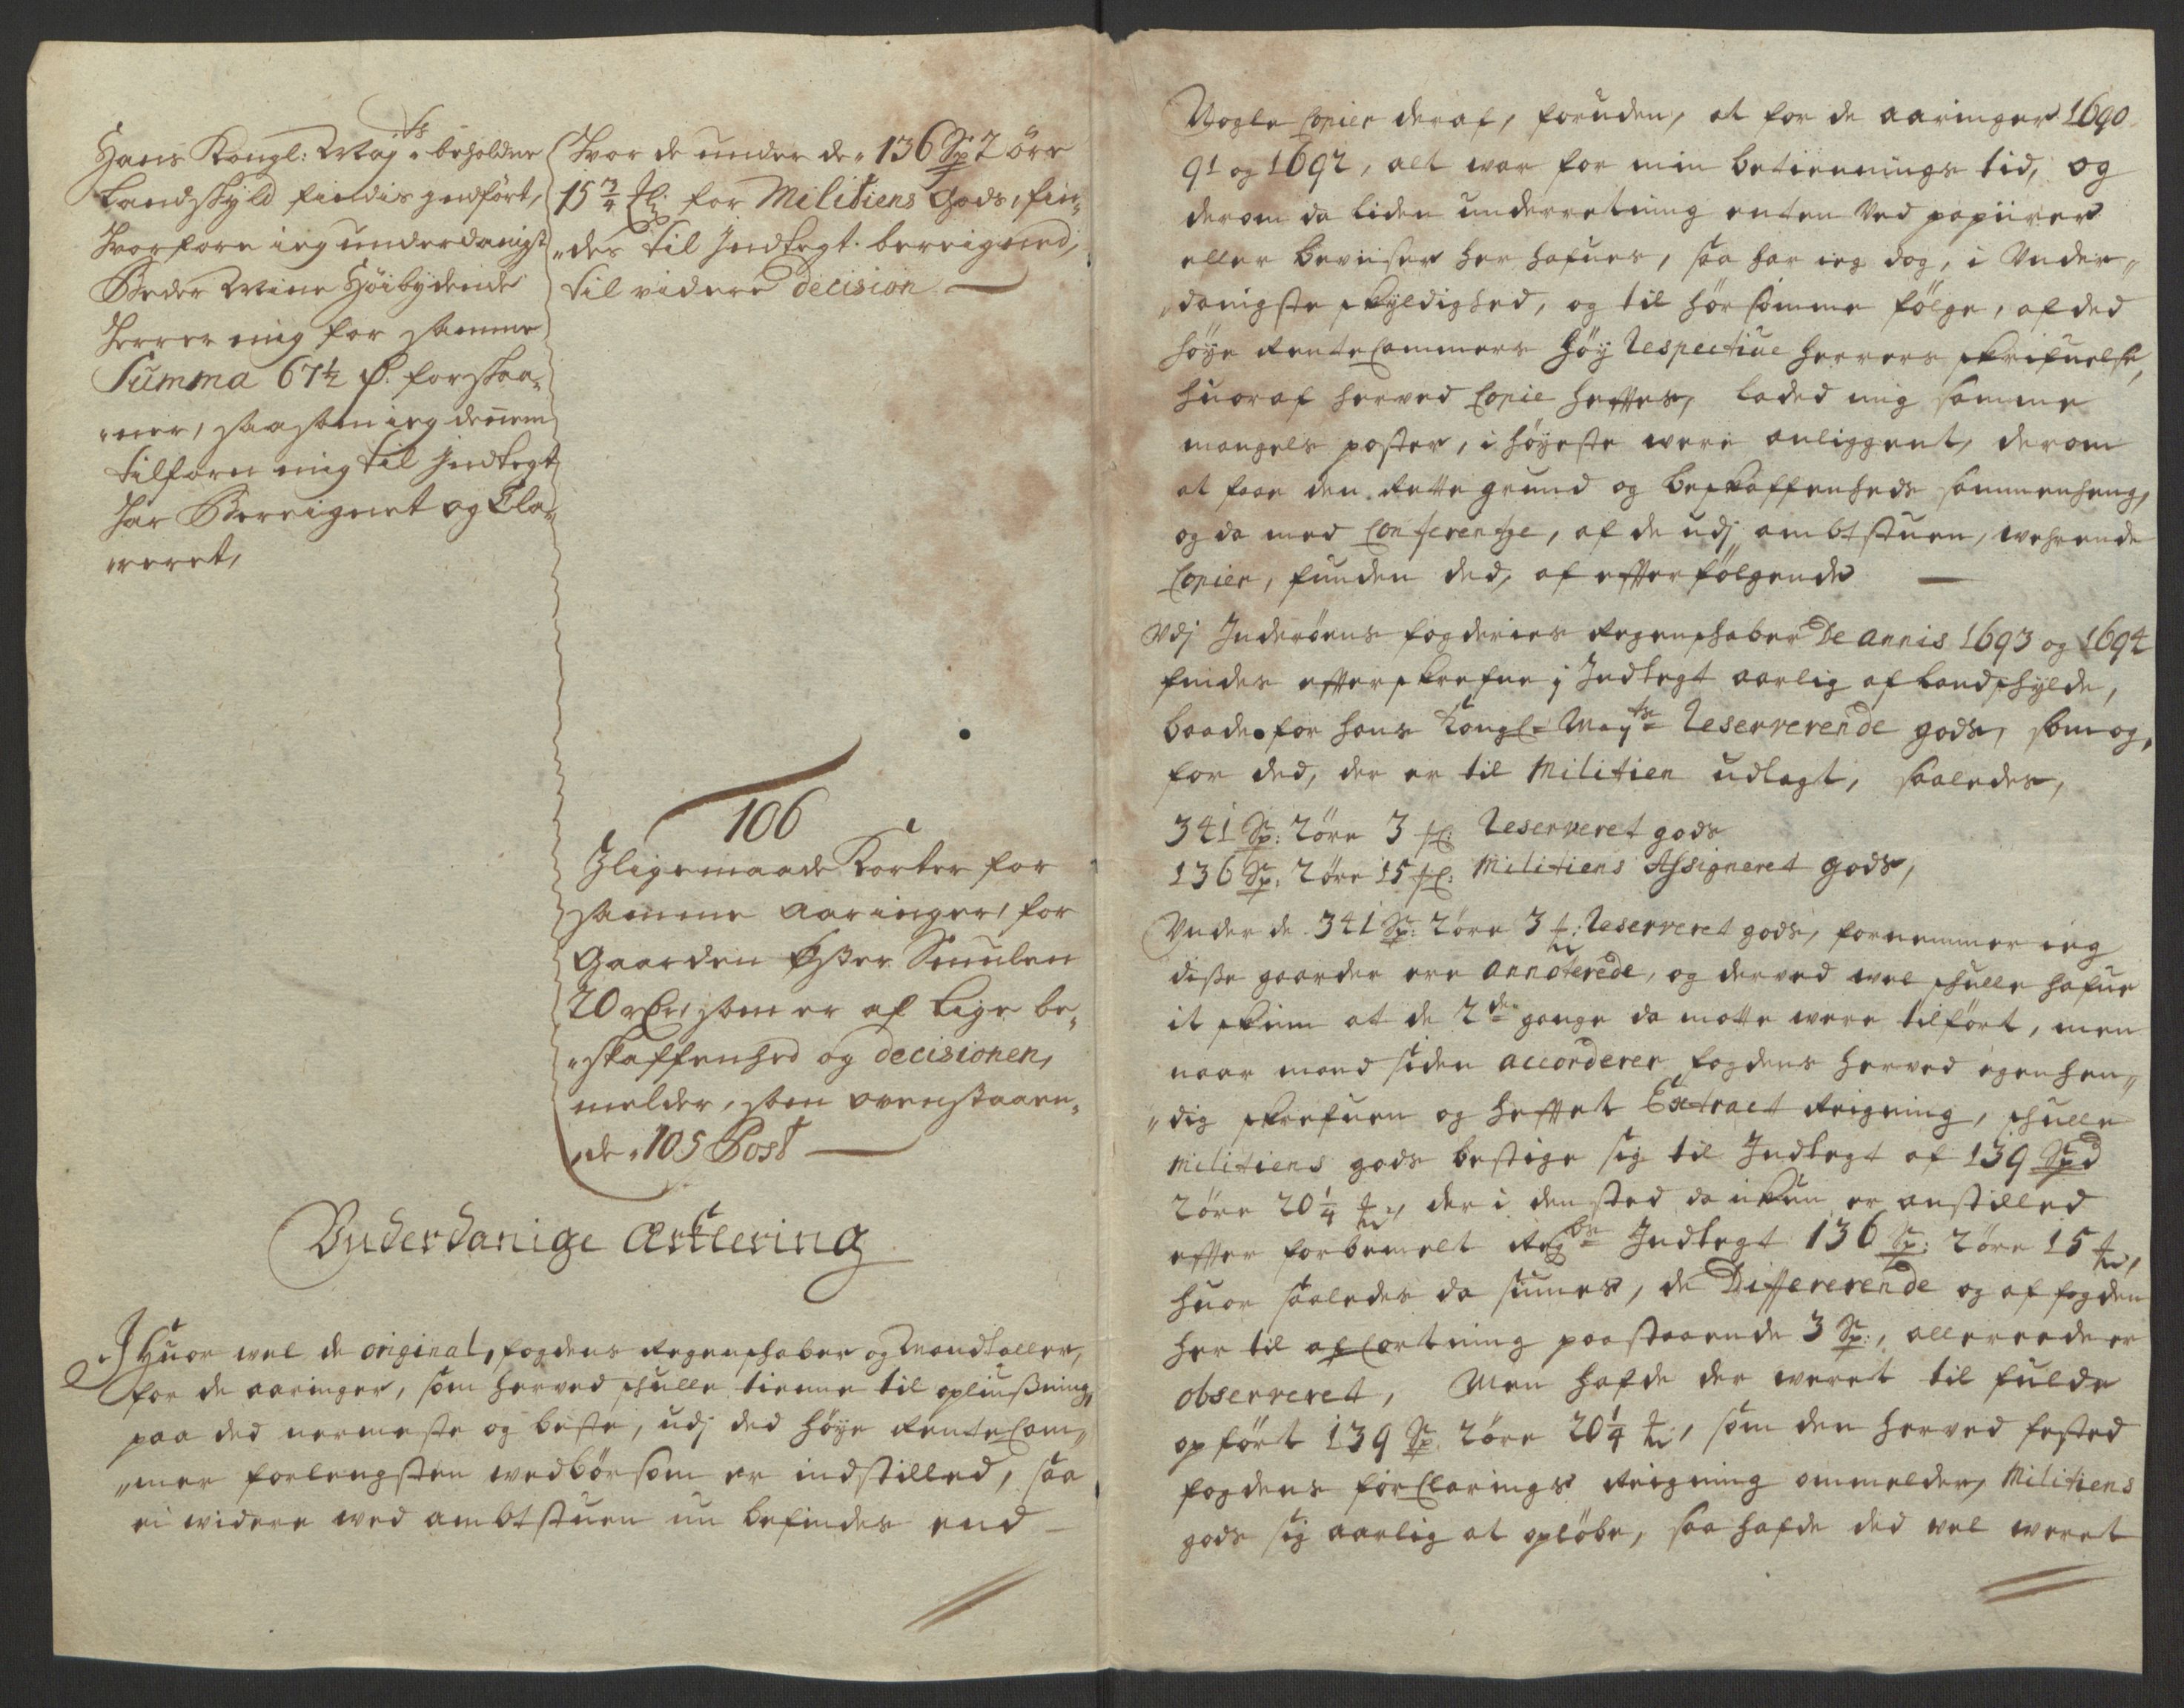 Hans Kongl: May.ts beholdne
Landskyld findis Indført,
Hvorfore ieg underdanigst
Beder Mine Høibydende
Herrer mig for samme
Summa 67½ forskaa-
ner, saasom ieg dennem
tilforn mig til Indtegt
har Bereignet og Cla-
reret,
Hvor de under de 136 Sp 2 öre
15¾ for Militiens Gods, fin-
des til Indtegt bereigned,
til videre decision
106
Iligemaade Korter for
samme Aaringer, for
Gaarden Øster Snulen
20 som er af lige be-
skaffenhed og decisionen,
melder, som ovenstaaen-
de 105 Post
Underdanige Ærklering
Ihuor vel de original, fogdens Regenschaber og Mandtaller,
for de aaringer, som herved schulle tienne til opliusning,
paa ded nermeste og beste, udj ded høye RenteCam-
mer forlengsten vedbørsom er indstilled, saa
ei widere wed ambtstuen nu befindes end
Nogle Copier deraf, foruden, at for de aaringer 1690
91 og 1692, alt war for min betiennings tid, og
derom da liden underretning enten Ved papiirer
eller Beviiser her hafues, saa har ieg dog, i Under-
danigste skyldighed, og til hørsomme følge, af ded
høye RenteCammers Høy Respective Herrers skrifuelse,
huoraf herved Copie heftes, laded mig samme
mangels poster, i høyeste were anliggent, derom
at faae den Rette grund og beskaffenheds sammenheng,
og da med Conferentze, af de udj ambtstuen, wehrende
Copier, funden ded, af efterfølgende
Udj Inderøens fogderies Regenschaber De Annis 1693 og 1694
findes efterskrefne i Indtegt aarlig af Landschylde,
baade for hans Kongl: Mayts Reserverende gods, som og,
for ded, der er til Militien udlagt, saaledes,
341 Sp: 2 öre 3 Reserveret gods
136 Sp: 2 öre 15 Militiens Assigneret gods,
Under de 341 Sp: 2 öre 3 Reserveret gods, fornemmer ieg
disse gaarder ere Annoterede, og derved wel schulle hafue
it skinn at de 2de gange da motte were tilført, men
naar mand siden accorderer fogdens herved egenhen-
dig skrefuen og heftet Extract Reigning, schulle
Militiens gods bestige sig til Indtegt af 139 Spd
2 öre 20¼ der i den sted da ikun er anstilled
efter forbemelt Indtegt 136 Sp: 2 öre 15
huor saaledes da siunes, de Differerende og af fogden
her til afCortning paastaaende 3 Sp:, allereede er
observeret, Men hafde der weret til fulde
opført 139 Sp 2 öre 20¼ som den herved fested
fogdens forClarings Reigning ommelder, Militiens
gods sig aarlig at opløbe, saa hafde ded wel weret